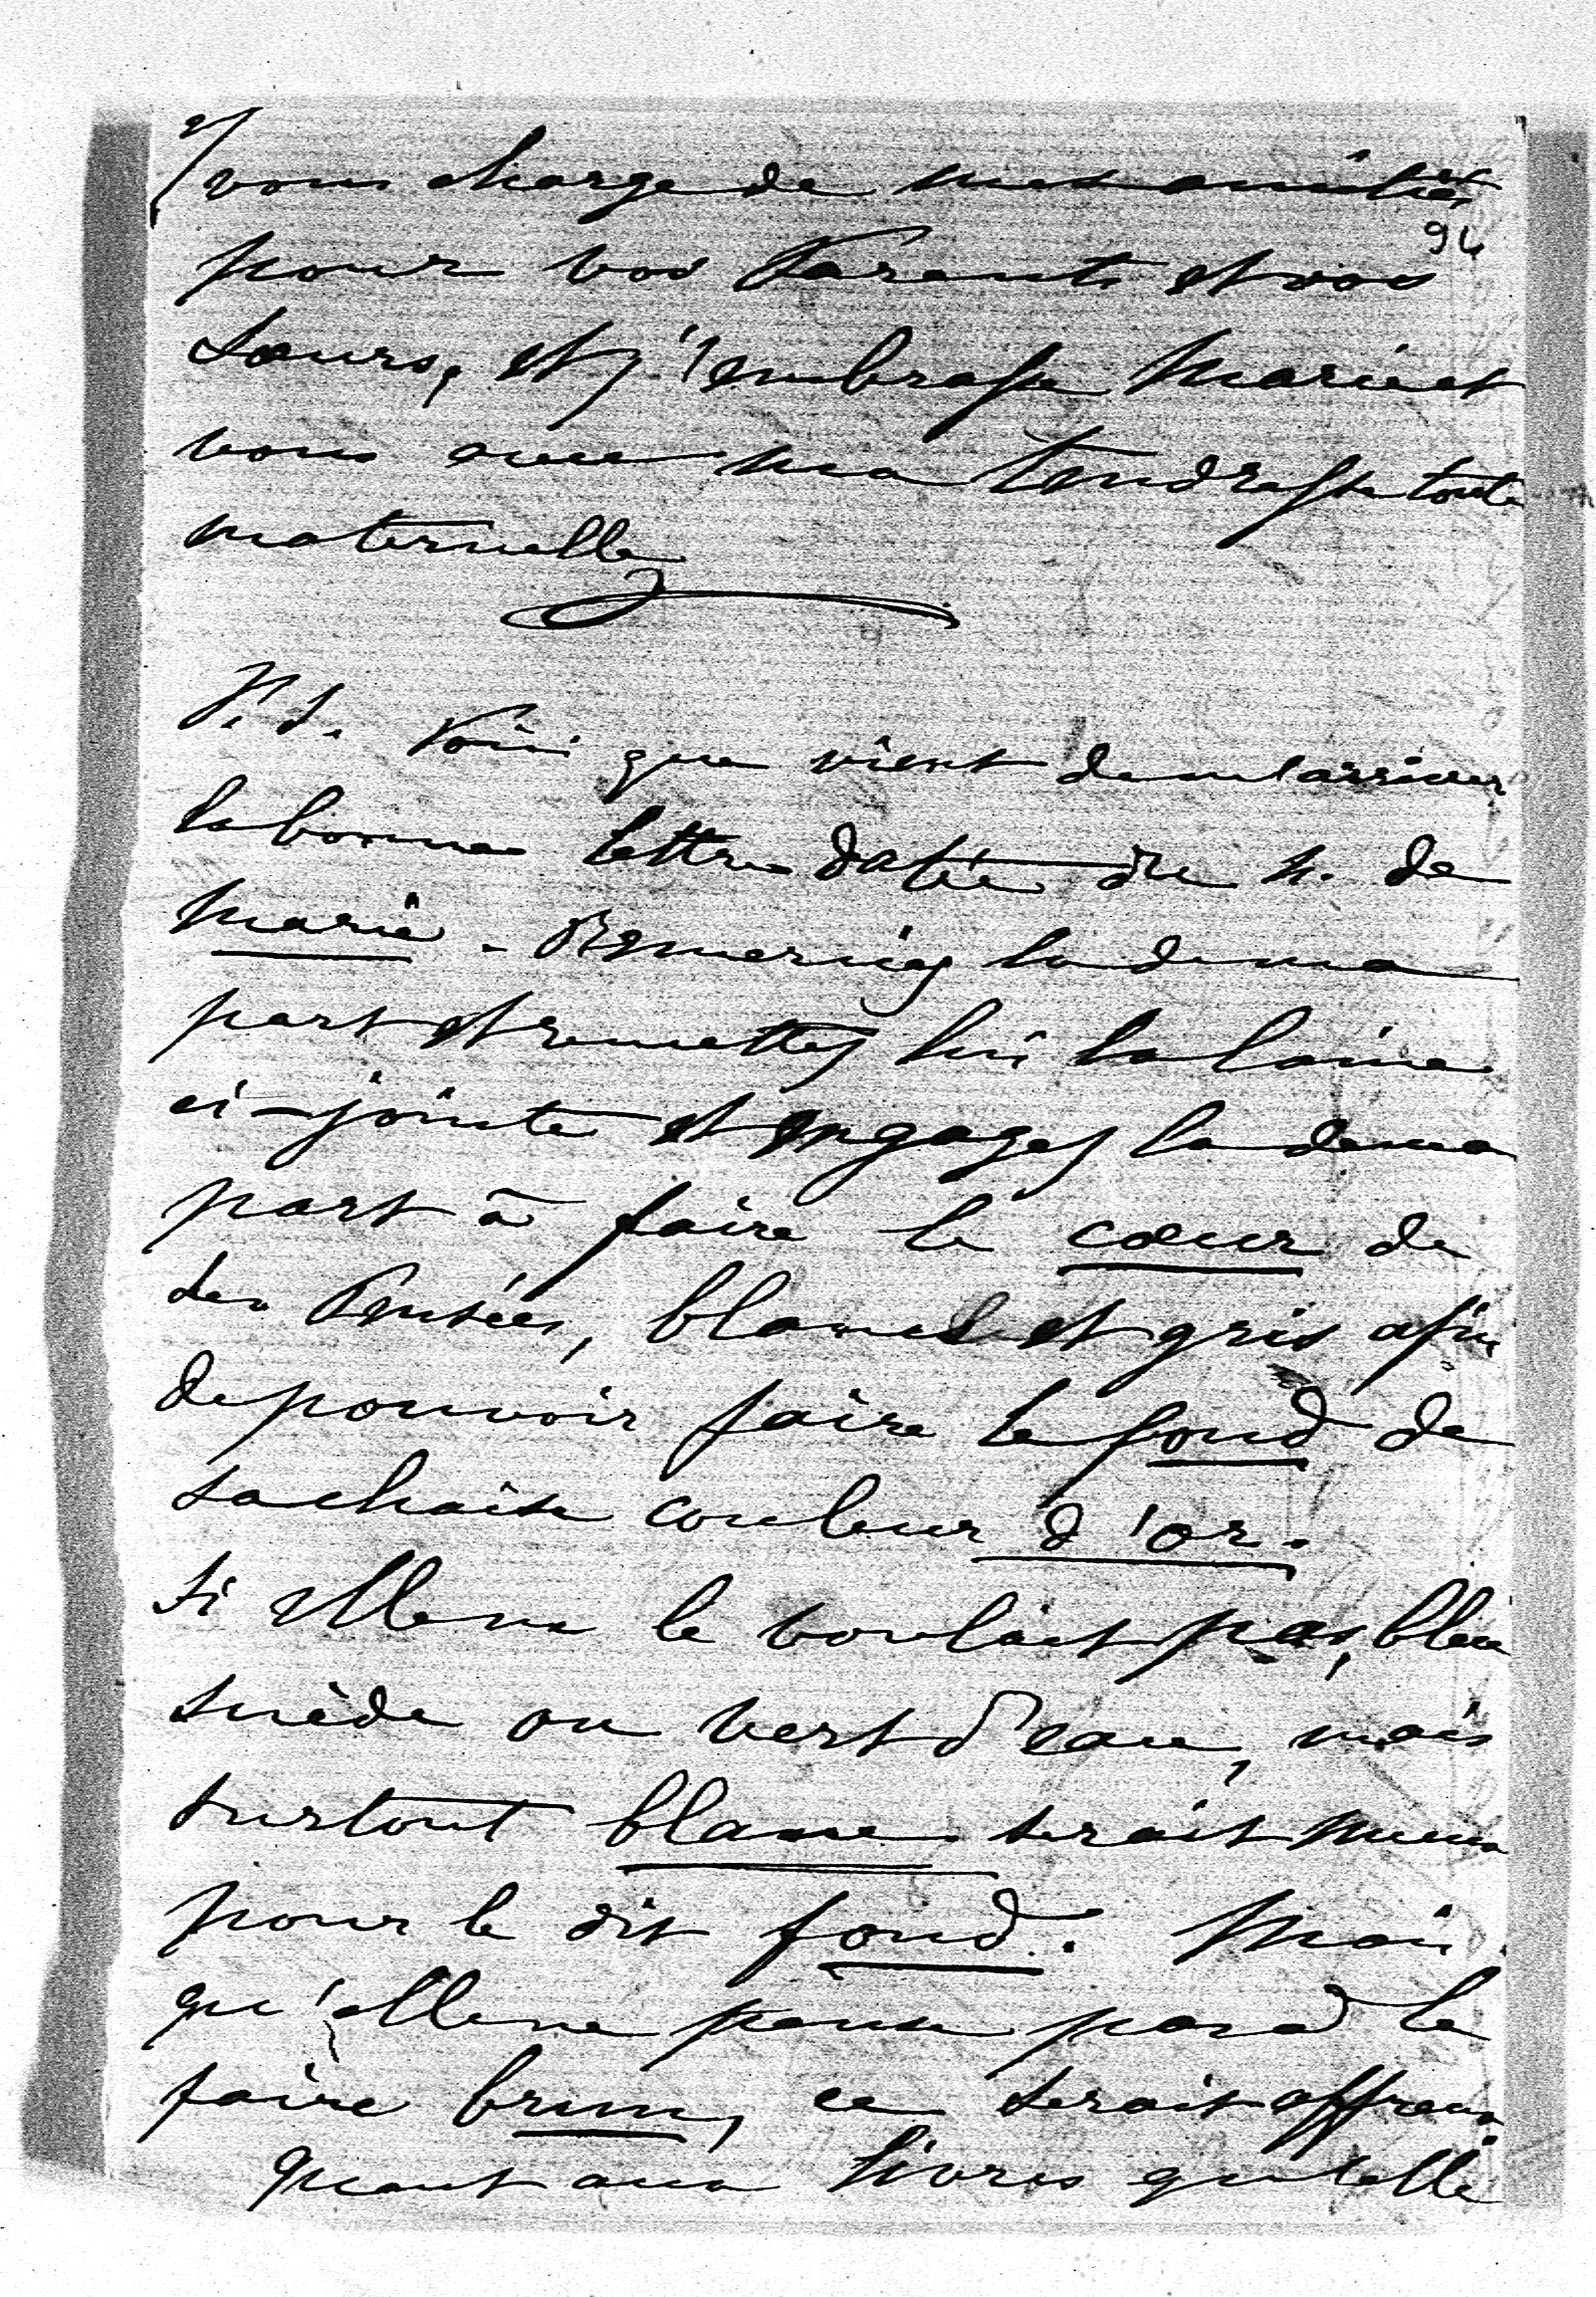 vous charge de mes amitiés
94
pour vos Parents et vos
Sœurs, et j'embrasse Marie et
vous avec ma tendresse toute
maternelle
P.S. Voici que vient de m'arriver
la bonne lettre datée du 4. de
Marie. Remerciez la de ma
part et remettez lui la laine
ci-jointe et engagez la de ma
part à faire le cœur de
ses Pensées, blanc et gris afin
de pouvoir faire le fond de
sa chaise couleur d'or.
Si elle ne le voulait pas, bleu
suède ou vert d'eau, mais
surtout blanc serait mieux
pour le dit fond. Mais
qu'elle ne pense pas à le
faire brun, ce serait affreux
Quant aux livres qu'elle